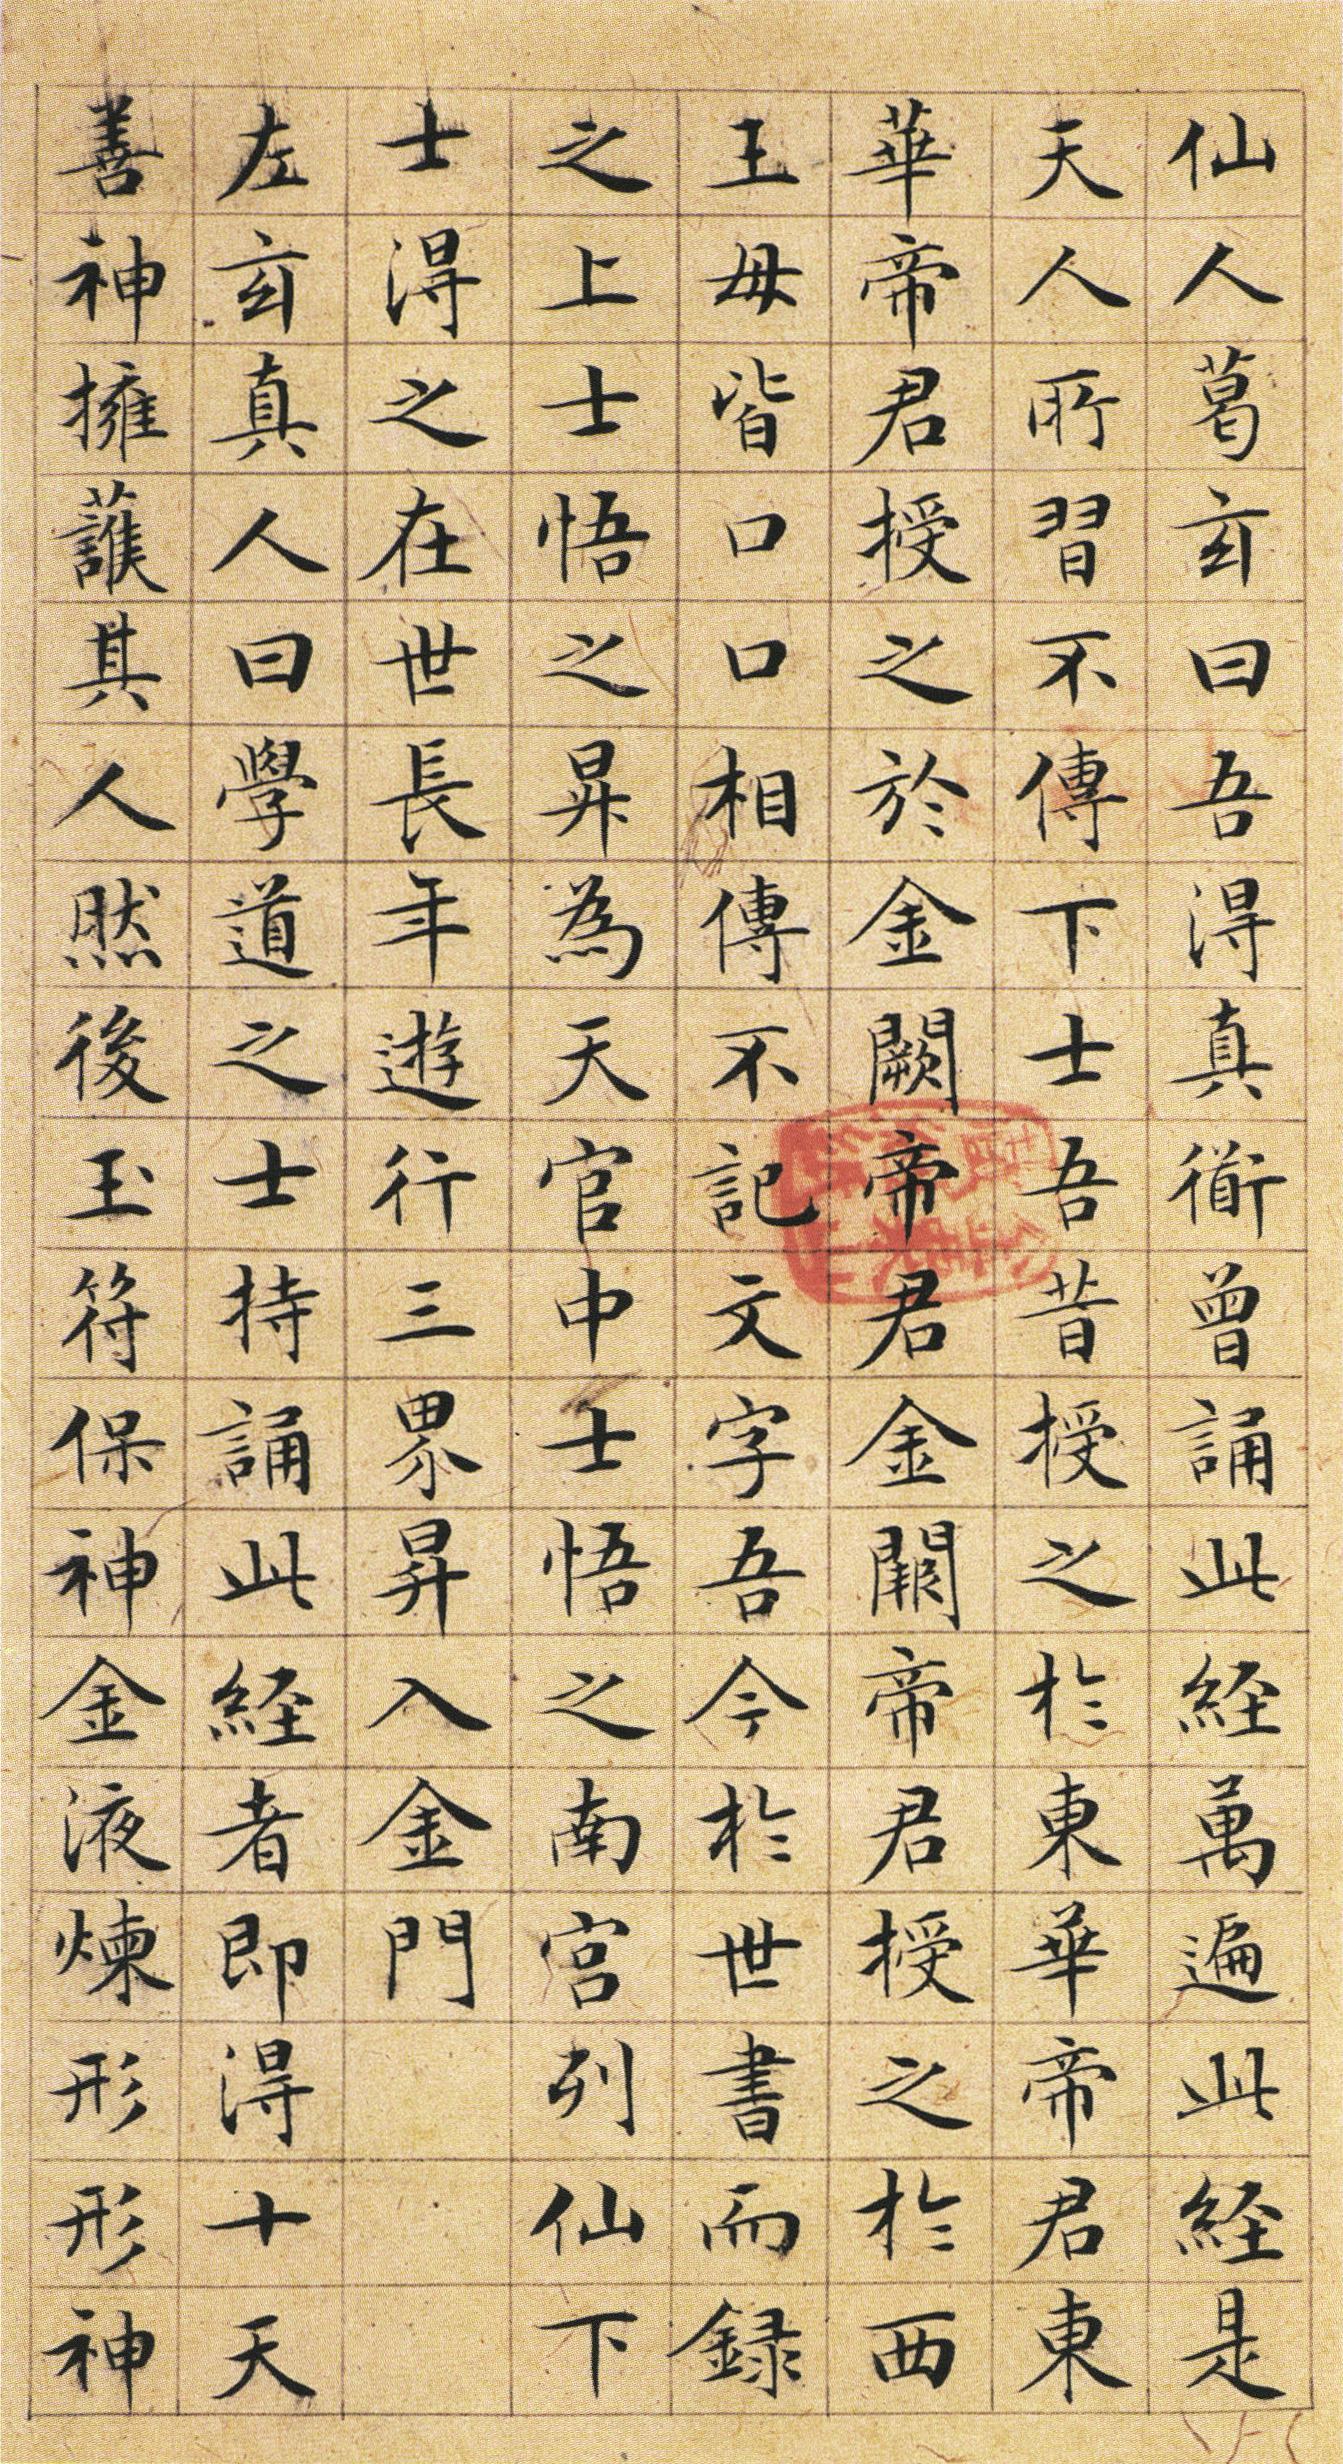 仙人葛玄曰吾淂真衜曾誦此経萬遍此経是
天人所習不傳下士吾昔授之於東華帝君東
華帝君授之於金闕帝君金闕帝君授之於西
王母皆口口相傳不記文字吾今於世書而録
之上士悟之昇為天官中士悟之南宮列仙下
士淂之在世長年遊行三界昇入金門
左玄真人曰學道之士持誦此経者即淂十天
善神擁護其人然後玉符保神金液煉形形神